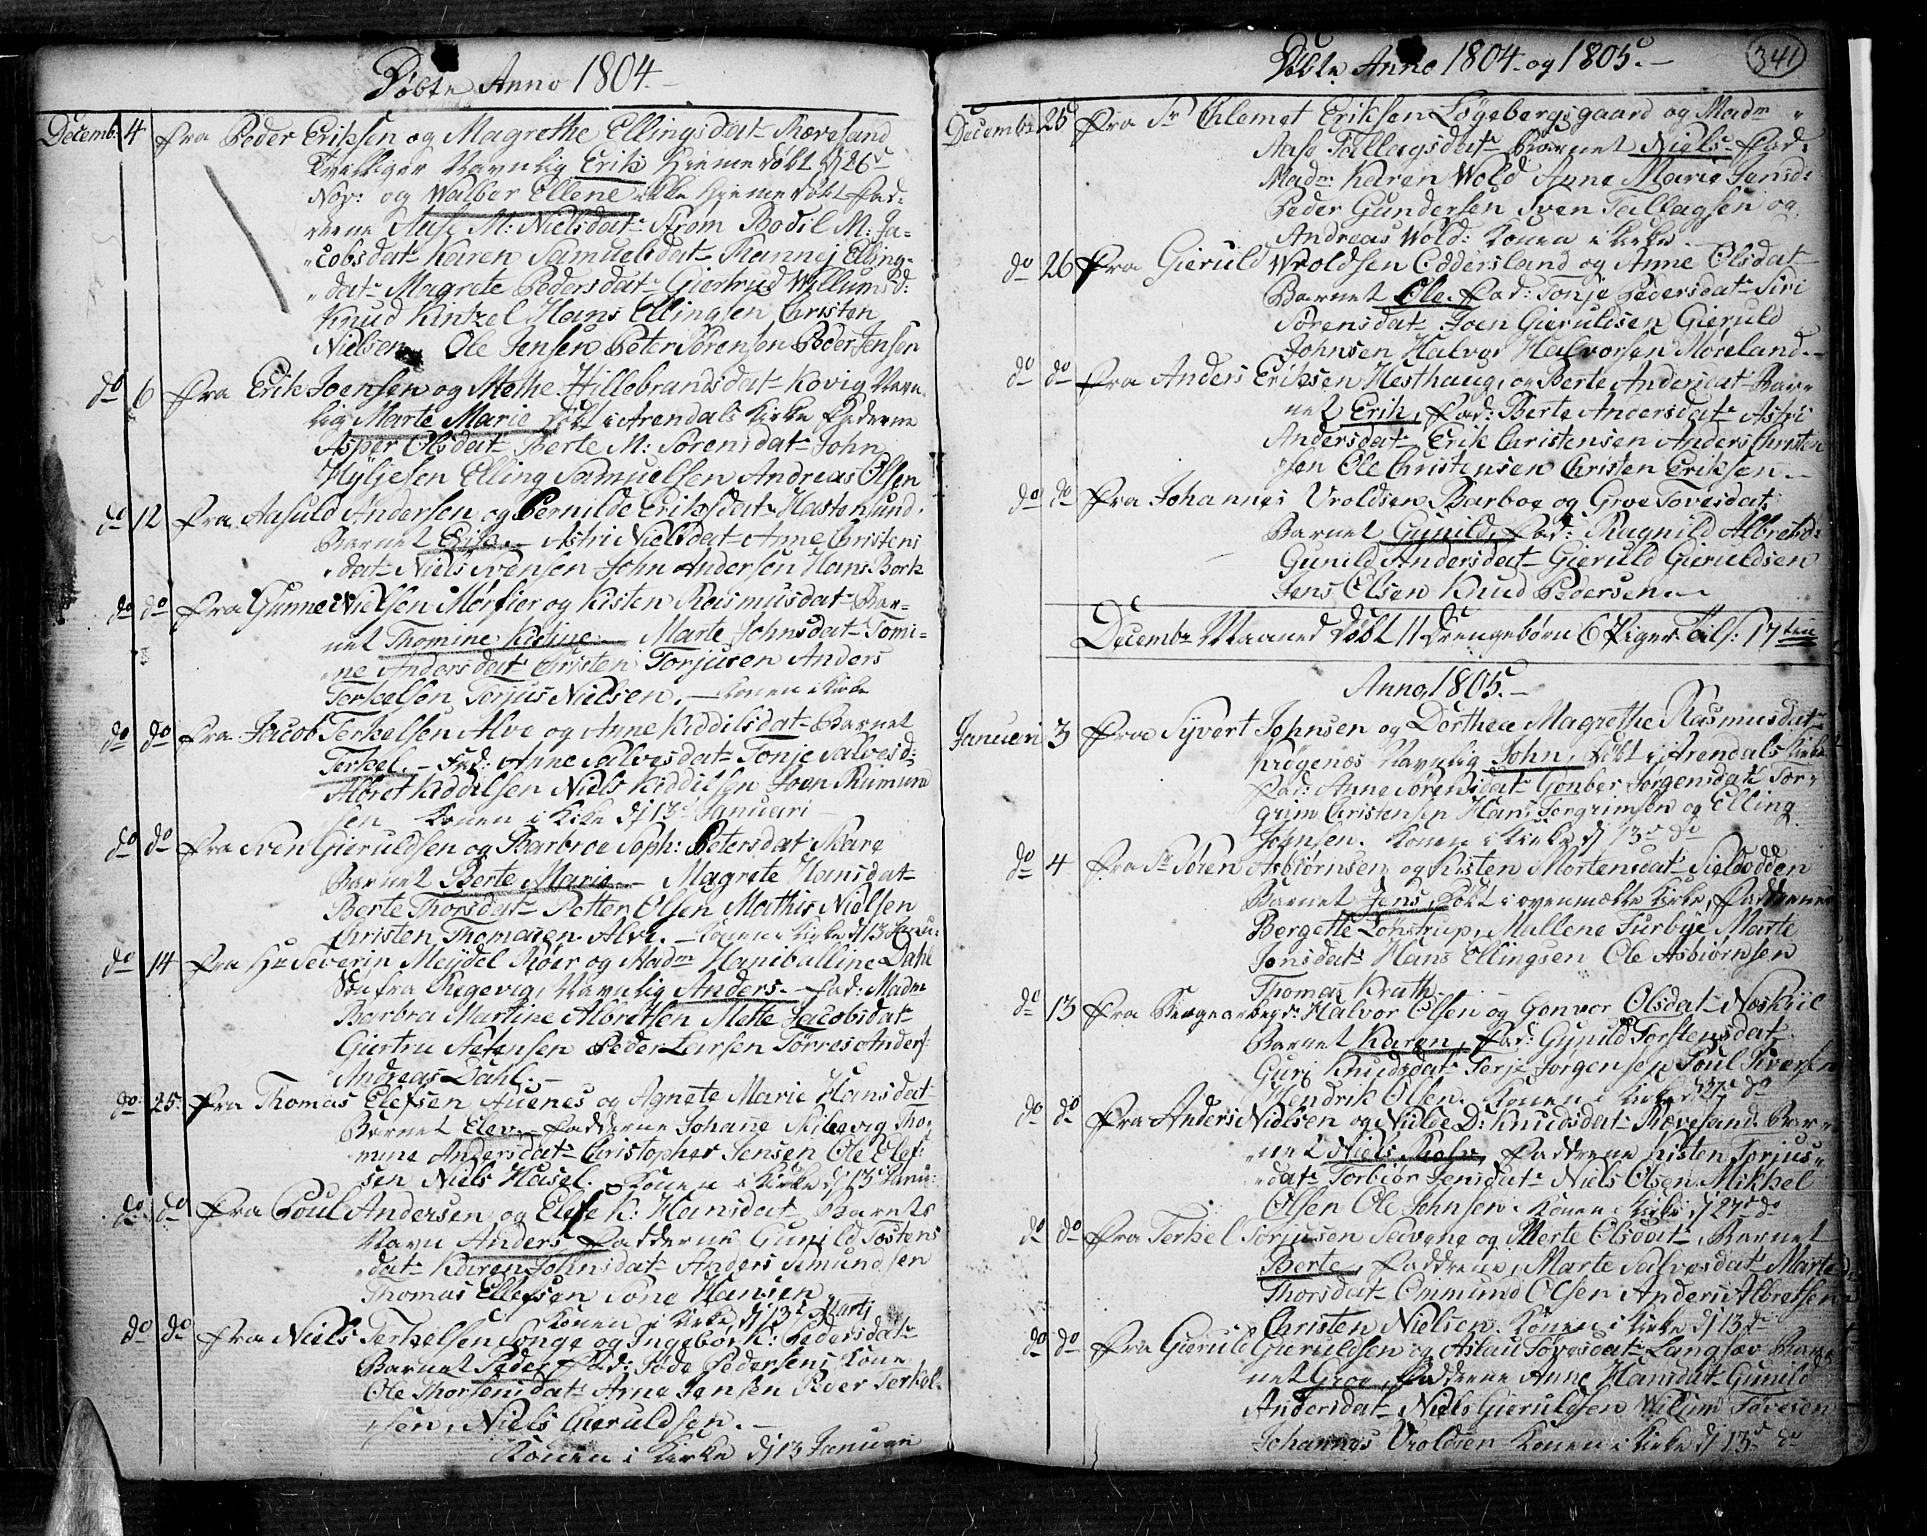 Døbte Anno 1804.
Decemb. 4 fra Peder Eriksen og Magrethe Ellingsdat Rævesand
Tvillger Navnlig Erik hiemedøbt d 26
Nov: og Walber Ellene ikke hiemedøbt Fad-
derne Aase M: Nielsdat Strøm Bodil M: Ja-
cobsdat Karen Samuelsdat Rannej Elling-
dat Magrete Pedersdat Giertrud Willumsd:
Knud Kintzel Hans Ellingsen Christen
Nielsen Ole Jensen Peter Sørensen Peder Jensen
do 6 fra Erik Joensen og Methe Hillebrandsdat Kovig Navn-
lig Marte Marie døbt i Arendals Kirke Fadderne
Asper Olsdat Berte M: Sørensdat John
Elling Samuelsen Andreas Olsen
do 12 fra Aasuld Andersen og Pernilde Eriksdat Hastensund
Barnet Erik Astri Nielsdat Anne Christens
dat Niels Svensen John Andersen Hans Bork
do do fra Gunne Nielsen Mørfier og Kisten Rasmusdat Bar-
net Thomine Kistine Marte Johnsdat Tomi-
ne Andersdat Christen Torjusen Anders
Terkelsen Torjus Nielsen. Konen i Kirke
do do fra Jacob Terkelsen Alve og Anne Kiddilsdat Barnet
Terkel. Fad: Anne Salvesdat Tonje Salvesd:
Albret Kiddilsen Niels Kiddilsen Joen Rumun
sen Konen i Kirke d 13 Januari
do do fra Sven Gieruldsen og Barbroe Soph: Petersdat Skare
Barnet Berte Marie Magrete Hansdat
Berte Thorsdat Petter Olsen Mathis Nielsen
Christen Thomasen Alve. Konen i Kirke d 13 Janu:
do 14 fra Hr Severin Meydel Roer og Madm Haniballine Dahl
Søn fra Rægevig, Navnlig Anders. Fad: Madm
Barbra Martine Albretsen Mette Jacobsdat
Giertru Peder Larsen Tørres Anders
Andreas Dahl.
do 25 fra Thomas Elefsen Auenes og Agnete Marie Hansdat
Barnet Elev. Fadderne Johane Kilevig Tho-
mine Andersdat Christopher Jensen Ole Elef-
sen Niels Hasel. Konen i Kirke d 13 Janu:
do do fra Poul Andersen og Elese K: Hansdat Barnets
Navn Anders Fadderne Gunild Tostens
dat Karen Johnsdat Anders Amundsen
Thomas Ellefsen Tone Hansen
Konen i Kirke d 13 Martj
do do fra Niels Terkelsen Songe og Ingebor K: Pedersdat
Barnet Peder Fad: Søde Pedersens Kone
Ole Thorsensdat Arne Jensen Peder Terkel-
sen, Niels Gieruldsen.
Konen i Kirke d 13 Januari
Døbte Anno 1804 og 1805.
341
Decembr 25 fra Sr Chlemet Eriksen Løgebergsgaard og Madm
Aase Tallagsdat Barnet Niels Fad:
Madm Karen Wold Anne Marie Jansd:
Peder Gundersen Sven Tallagsen og
Andreas Wold: Konen i Kirke.
do 26 fra Gieruld Wroldsen Eddersland og Anne Olsdat
Barnet Ole. Fad: Tonje Pedersdat Siri
Sørensdat Joen Gieruldsen Gieruld
Johnsen Halvor Halvorsen Møreland.
do do fra Anders Eriksen Hesthaug, og Berte Andersdat Bar-
net Erik, Fad: Berte Andersdat Astri
Andersdat Erik Christensen Anders Christen
sen Ole Christensen Christen Eriksen.
do do fra Johannes Vroldsen Barboe og Groe Tovesdat
Barnet Gunild, Fad: Ragnild Albretsd:
Gunild Andersdat Gieruld Gieruldsen
Jens Olsen Knud Pedersen.
Decembr Maaned døbt 11 Drengebørn 6 Piger Tils: 17 ten
Anno 1805.
Januari 3 fra Syvert Johnsen og Dorthea Magrethe Rasmusdat
Krøgenes Navnlig John, døbt i Arendals Kirke
Fad: Anne Sørensdat Gonber Jørgensdat Tor-
grim Christensen Hans Torgrimsen og Elling
Johnsen. Konen i Kirke d 13 do
do 4 fra Sr Søren Asbiørnsen og Kisten Mortensdat Sielsødden
Barnet Jens, døbt i ovenmelte Kirke, Fadderne
Bergette Lønstrup, Mallene Furbye Marte
Jonsdat Hans Ellingsen Ole Asbiørnsen
Thomas Krath.
do 13 fra Halvor Olsen og Gonvor Olsdat Næskiil
Barnet Karen, Fad: Gunild Torstensdat
Guri Knudsdat Terje Jørgensen Poul Siversen
Hendrik Olsen. Konen i Kirke d 27 do
do do fra Anders Nielsen og Nielde D: Knudsdat Rævesand Bar-
net Niels Fadderne Kisten Torjus-
dat Torbiør Jensdat Niels Olsen Mikkel
Olsen Ole Johnsen. Konen i Kirke d 27 do
do do fra Terkel Torjusen Seivene og Merte Olsdat, Barnet
Berte, Fadderne, Marte Salvesdat Marte
Thorsdat Ommund Olsen Anders Albretsen
Christen Nielsen. Konen i Kirke d 13 do
do do fra Gieruld Gieruldsen og Aslau Tovesdat Langsæv Bar-
net Groe, Fadderne Anne Hansdat Gunild
Andersdat Niels Gieruldsen Willum Tovesen
Johannes Vroldsen Konen i Kirke d 13 do